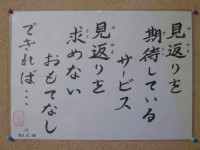 見返りを
期待している
サービス
見返りを
求めない
おもてなし
できれば…